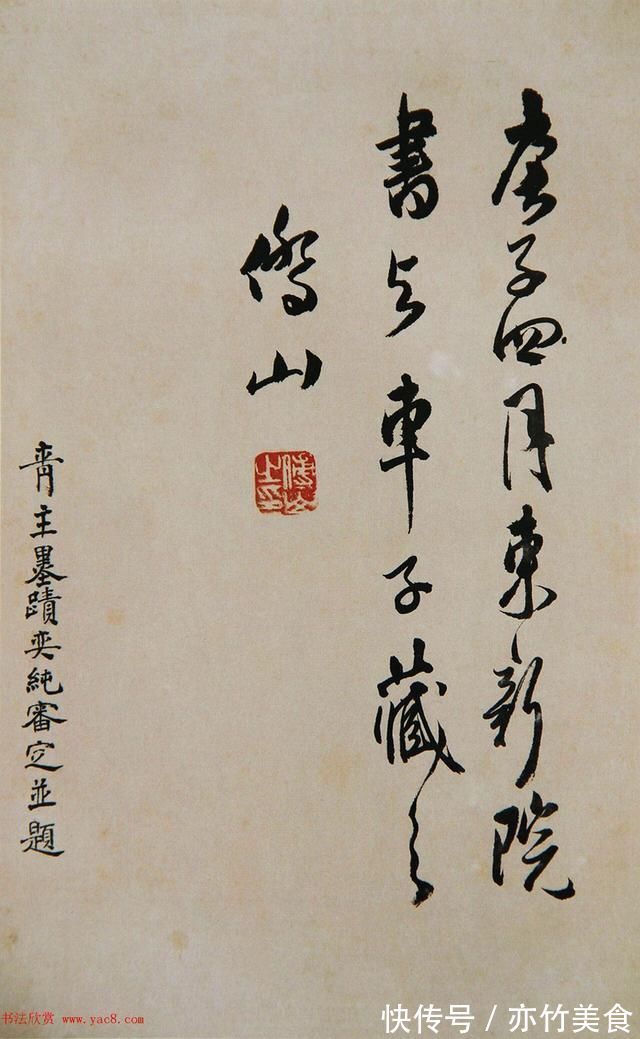 庚子四月東新院
書与車子藏之
僑山
傅山之印
青主墨蹟奕純審定並題
书法欣赏 www.yac8.com
快传号/亦竹美食